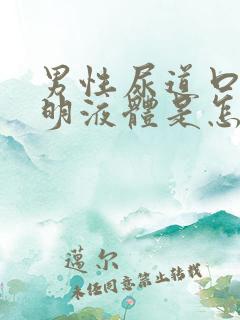 男性尿道口
明液體是怎
邁尔
未经同意禁止转载